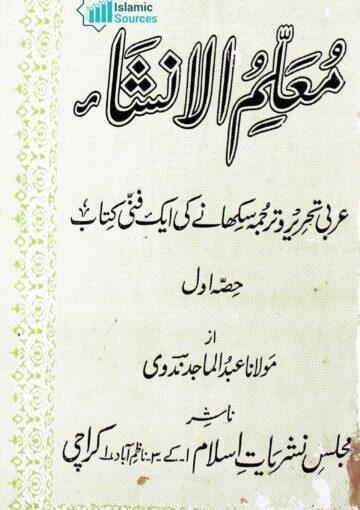 Islamic
Sources
مُعَلِّمُ الإنشَاء
عربی تحریر و ترجمہ سکھانے کی ایک فنّی کتاب
حصہ اول
از
مولانا عبدُ الماجد ندوی
ناشر
مجلس نشریاتِ اسلام ۱۔کے۔۳۔ناظم آباد۱ کراچی